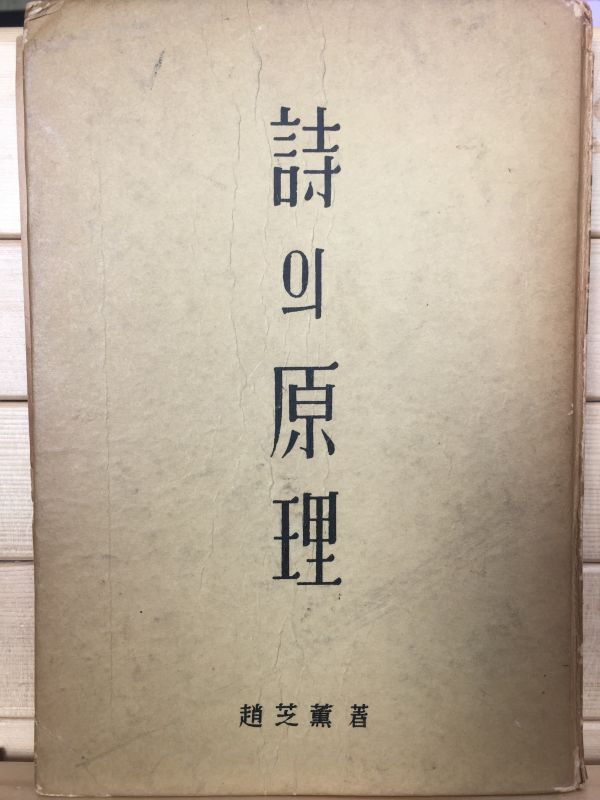 詩의原理
趙芝薰 著